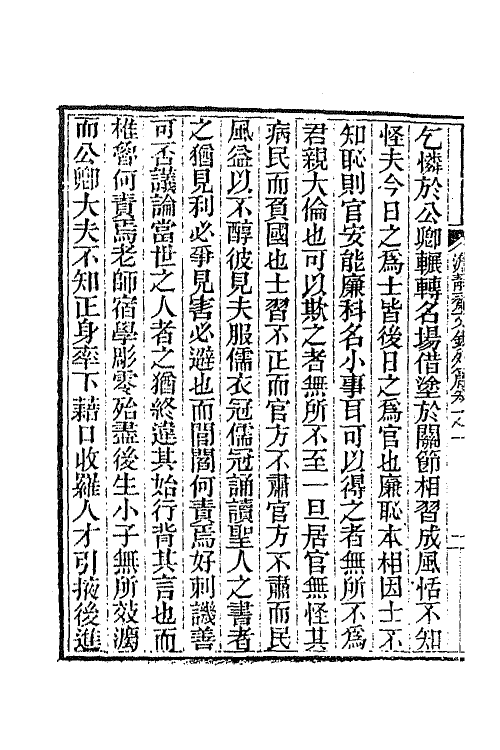 乞憐於公卿輾轉名場借塗於關節相習成風恬不知
怪夫今日之爲士皆後日之爲官也廉恥本相因士不
知恥則官安能廉科名小事耳可以得之者無所不爲
君親大倫也可以欺之者無所不至一旦居官無怪其
病民而負國也士習不正而官方不肅官方不肅而民
風益以不醇彼見夫服儒衣冠儒冠誦讀聖人之書者
之猶見利必爭見害必避也而閭閻何責焉好刺譏善
可否議論當世之人者之猶終違其始行背其言也而
椎魯何責焉老師宿學彫零殆盡後生小子無所效灟
而公卿大夫不知正身率下藉口收羅人才引掖後進
澹靜齋文鈔外篇卷一